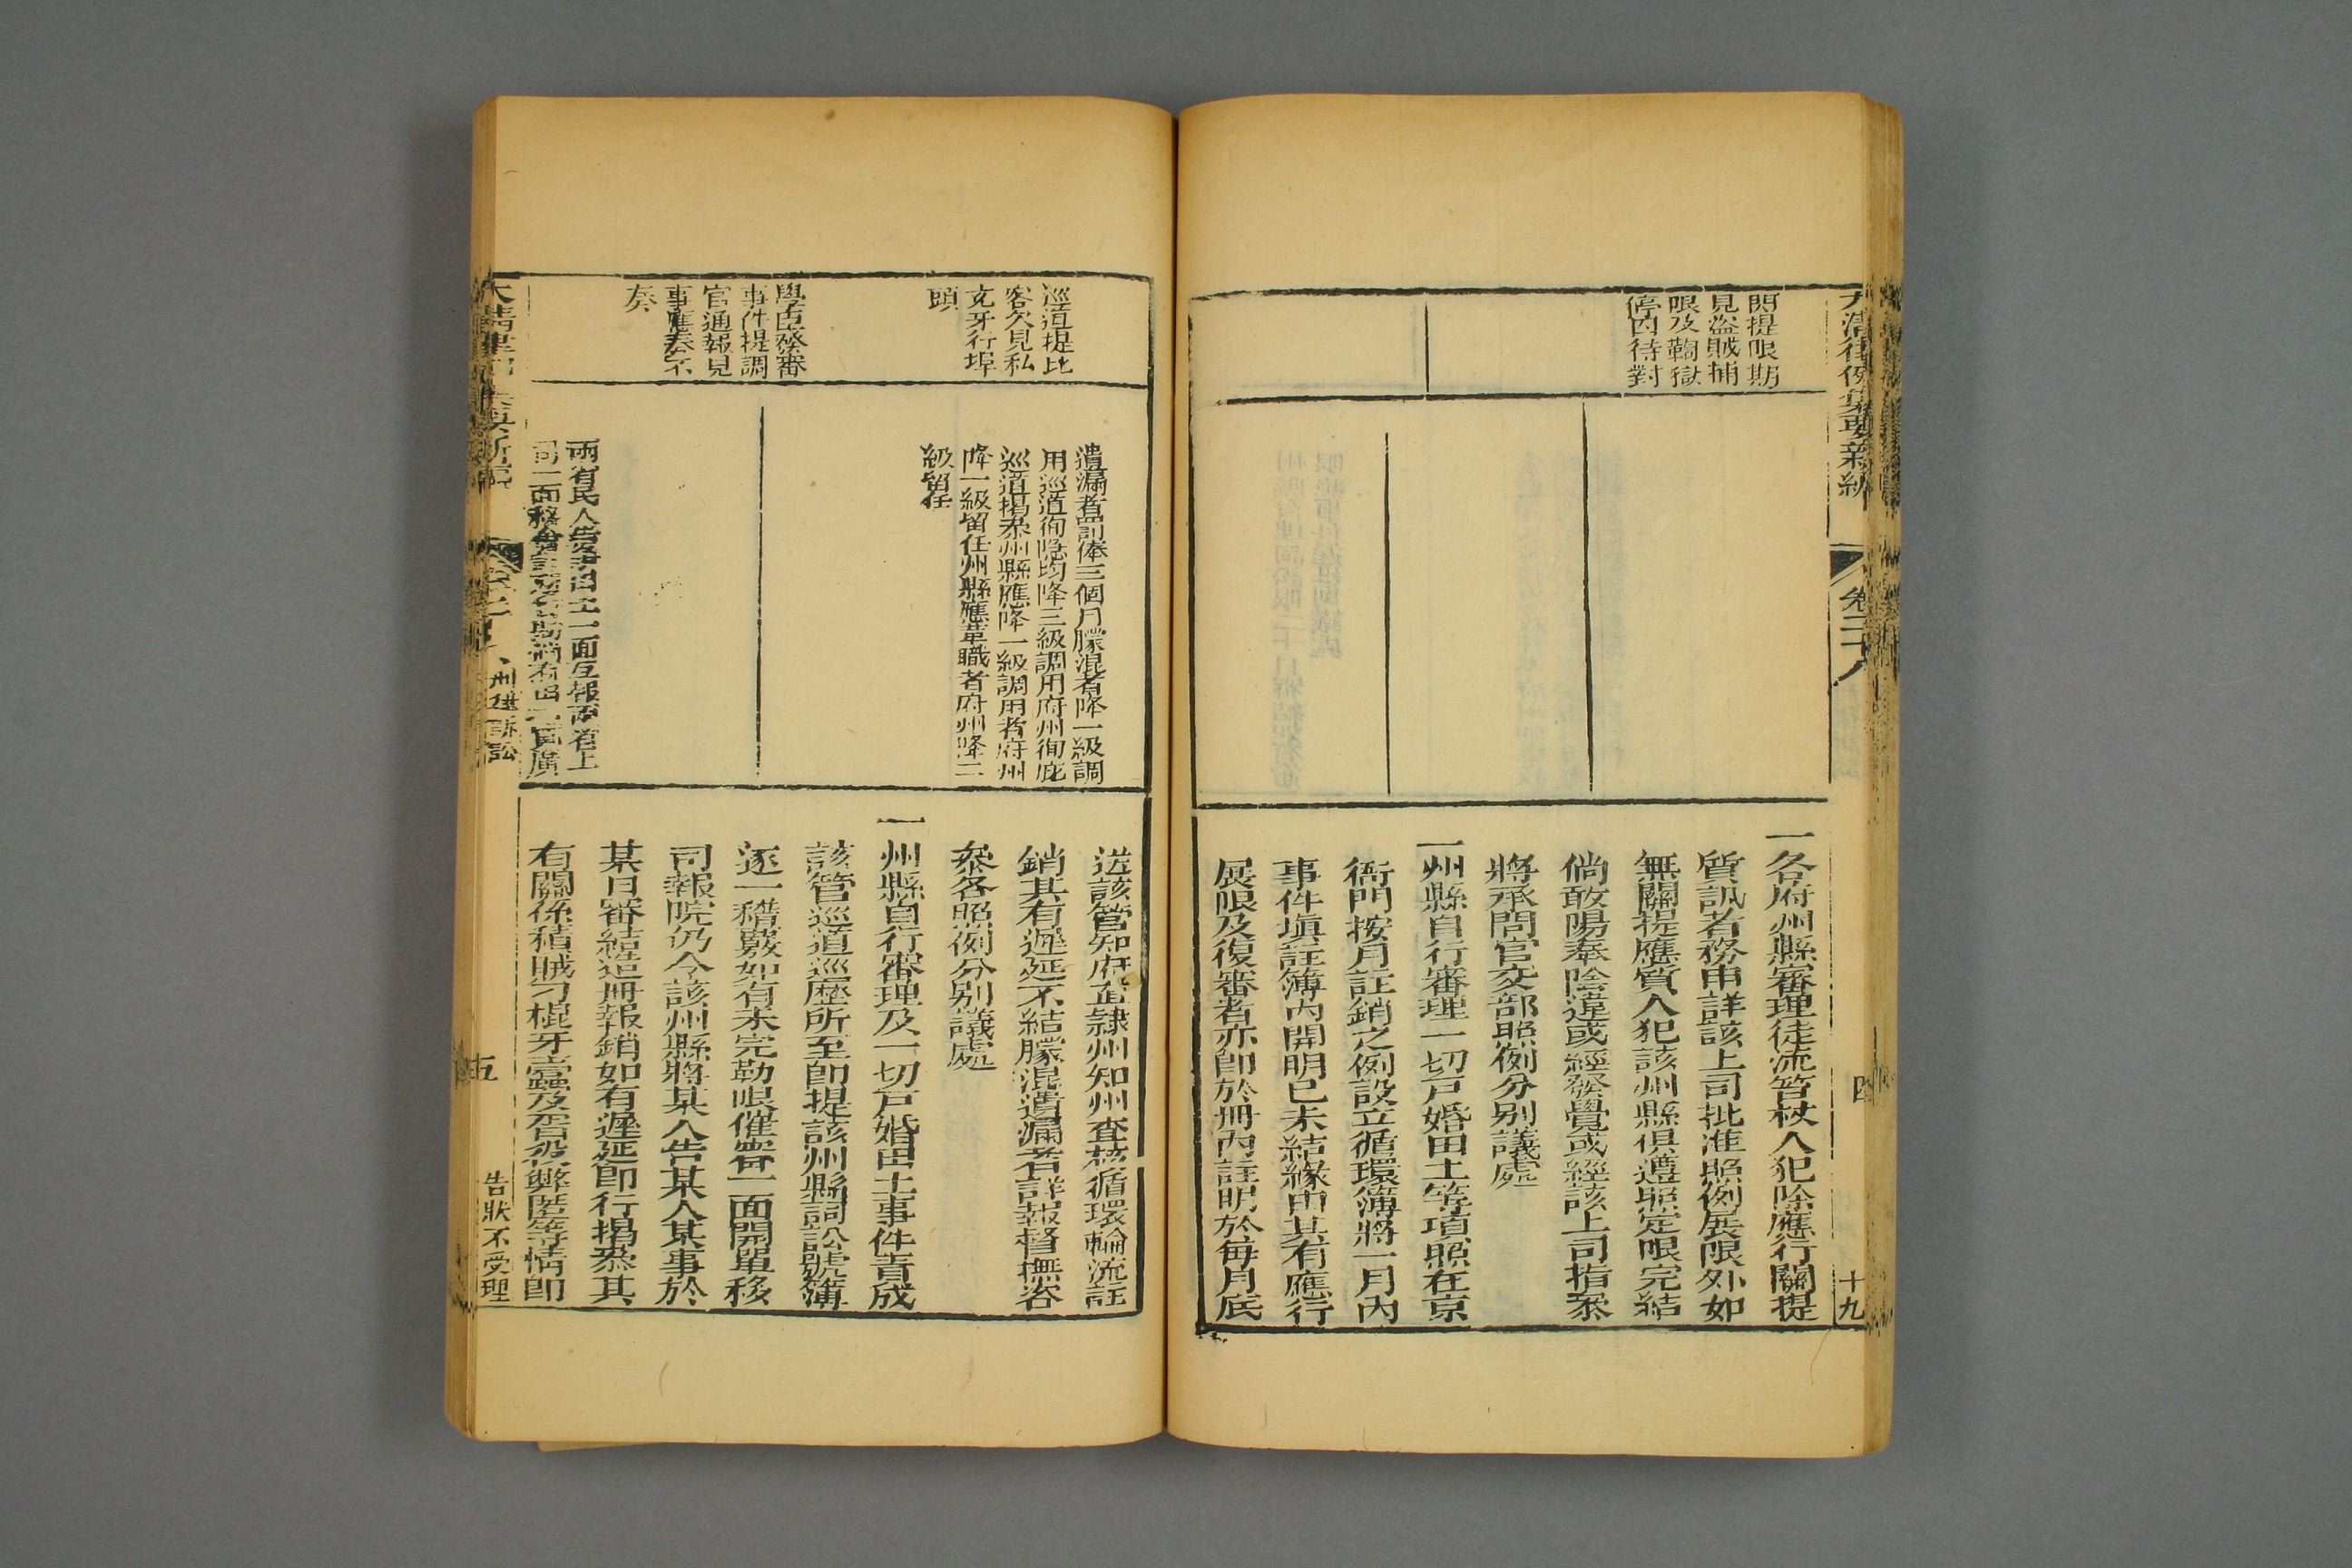 大清律例集要新編
卷二十八
四
十九
関提限期
見盜賊捕
限及鞫獄
停囚待對
一各府州縣審理徒流笞杖人犯除應行關提
質訊者務申詳該上司批准照例展限外如
無關提應質人犯該州縣俱遵照定限完結
倘敢陽奉陰違或經發覺或經該上司指叅
將承問官交部照例分別議處
一州縣自行審理一切戸婚田土等項照在京
衙門按月註銷之例設立循環簿將一月內
事件填註簿內開明已未結緣由其有應行
展限及復審者亦卽於冊內註明於每月底
巡道提比
客欠見私
充牙行埠
頭
學臣發審
事件提調
官通報見
事應奏不
奏
遺漏者罰俸三個月朦混者降一級調
用巡道徇隱均降三級調用府州徇庇
巡道揭叅州縣應降一級調用者府州
降一級留任州縣應革職者府州降二
級留任
兩省民人告爭田土一面互報兩省上
送該管知府直隸州知州查核循環輪流註
銷其有遲延不結朦混遺漏者詳報督撫咨
叅各照例分別議處
一州縣自行審理及一切戸婚田土事件責成
該管巡道巡歷所至卽提該州縣詞訟號簿
逐一稽覈如有未完勒限催審一面開單移
司報院仍令該州縣將某人告某人某事於
某日審結造冊報銷如有遲延卽行揭叅其
有關係積賊刁棍牙蠹及胥役弊匿等情卽
刑律訴訟
五
告狀不受理